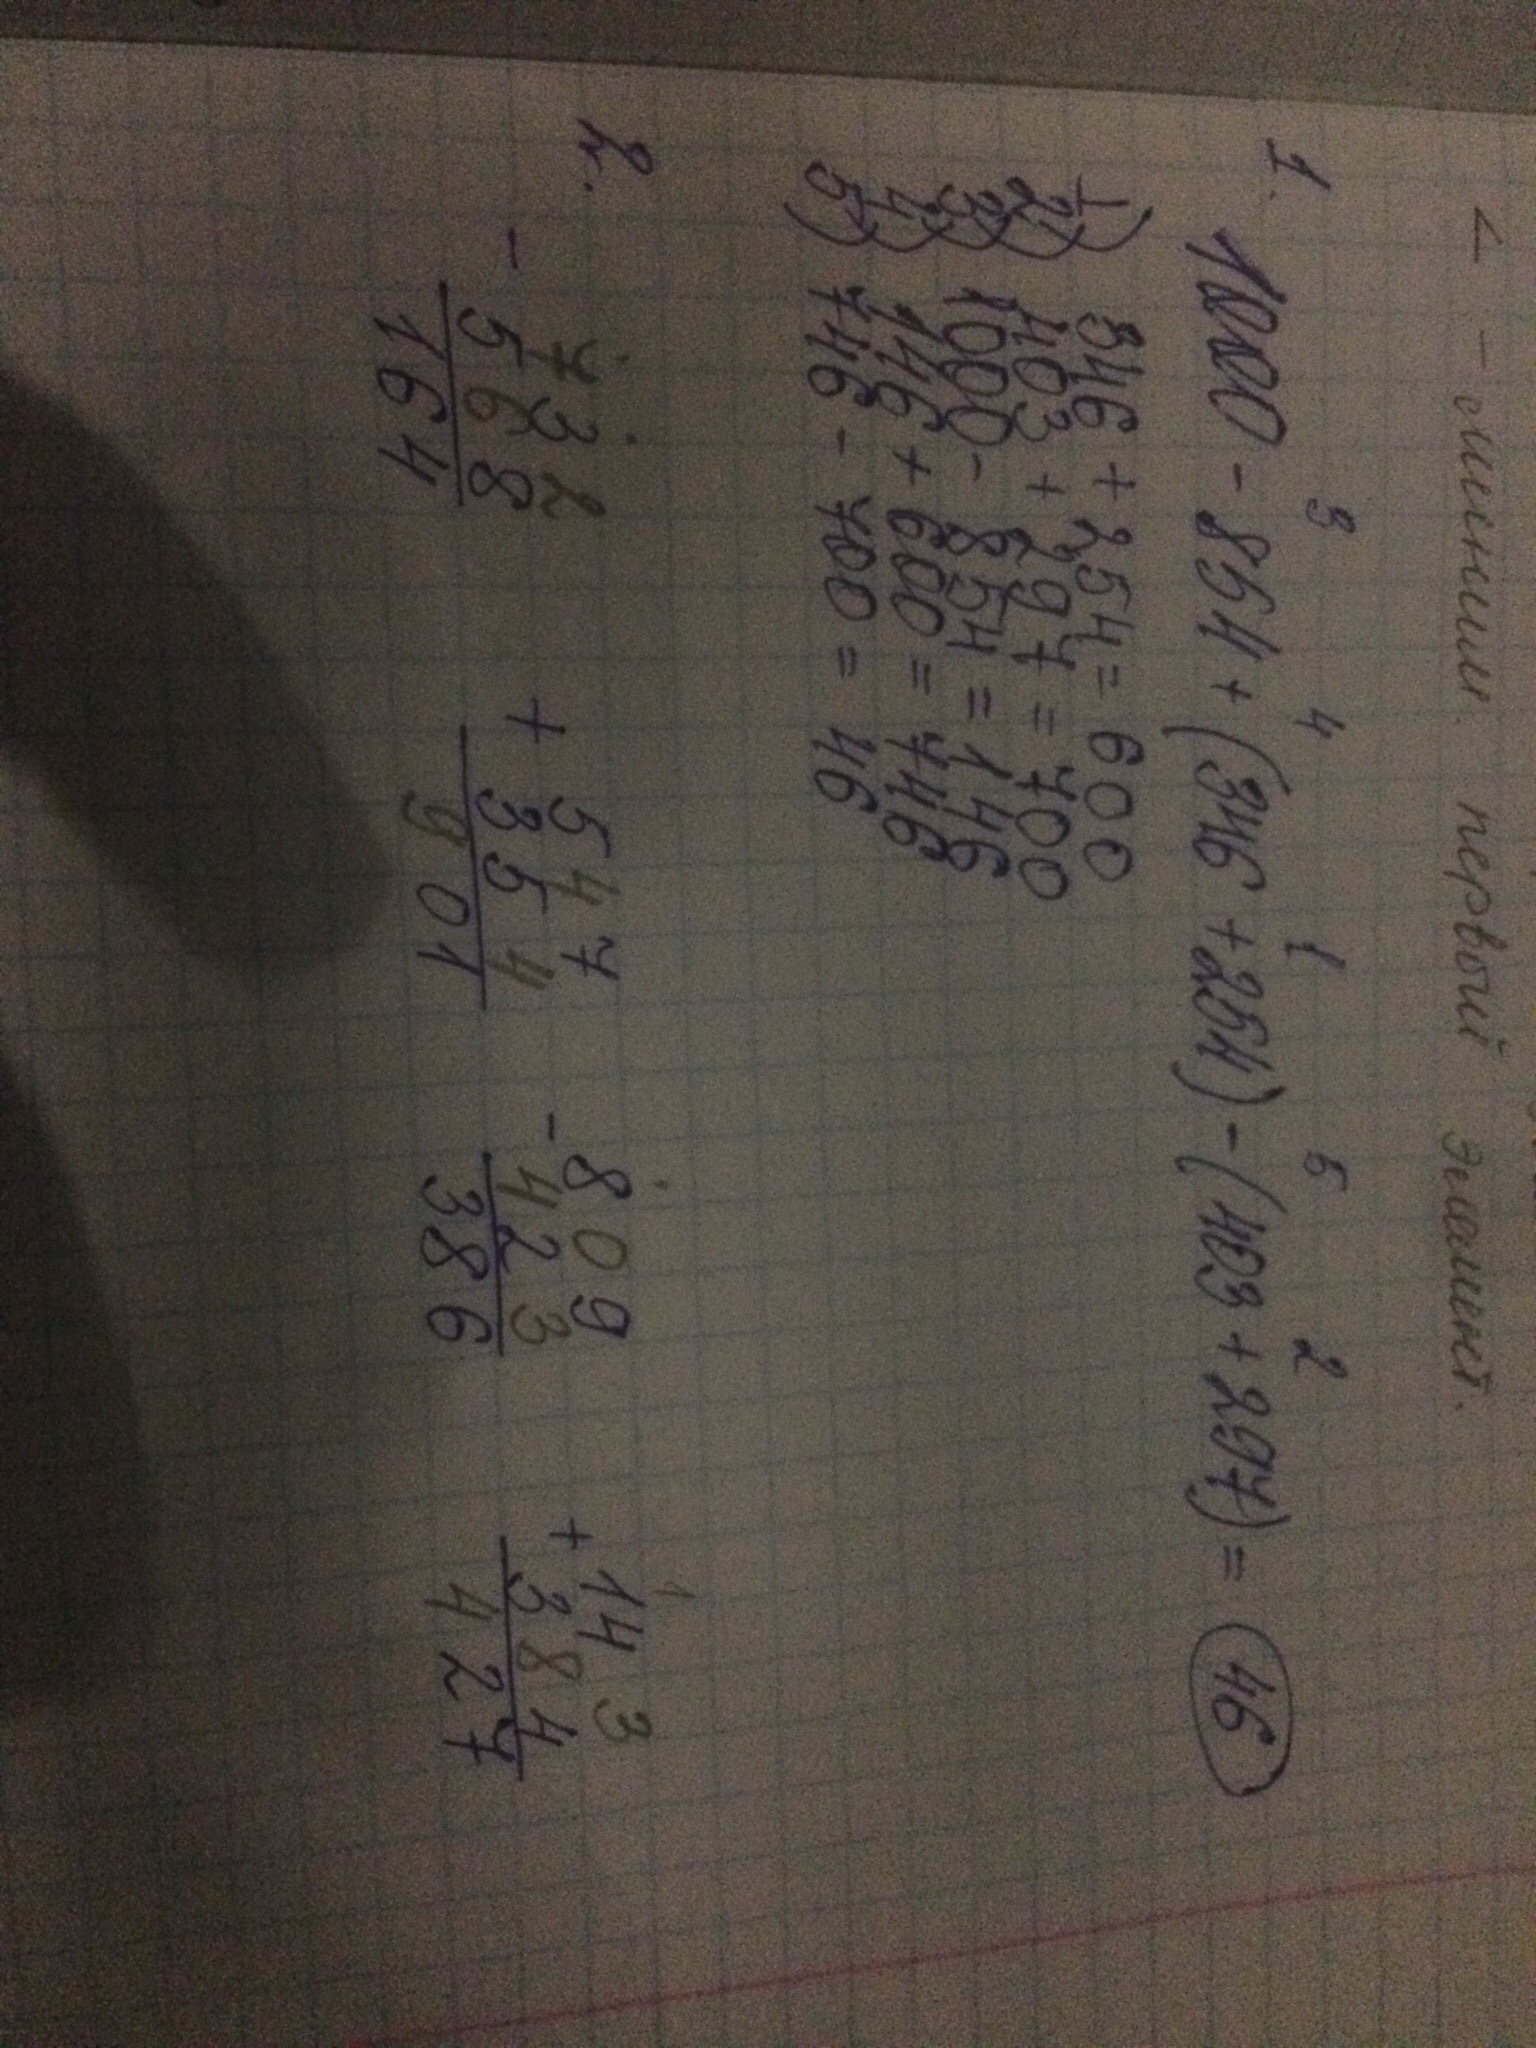 < - сменим. первый элемент.
3 4 1 5 2
1. 1000 - 854 + (346 + 254) - (403 + 297) = 46
1) 346 + 254 = 600
2) 403 + 297 = 700
3) 1000 - 854 = 146
4) 146 + 600 = 746
5) 746 - 700 = 46
1
2. - 732 + 547 - 809 + 143
568 354 423 384
164 901 386 427